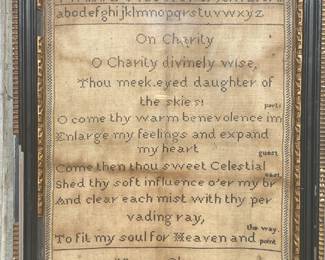 abcdefghijklmnopqrstuvwxyz
On Charity
O Charity divinely wise,
Thou meek.eyed daughter of
the skies!
part
O come thy warm benevolence im
Enlarge my feelings and expand
my heart
guest
Come then thou sweet Celestial
east
Shed thy soft influence o'er my br
And clear each mist with thy per
vading ray,
the way.
To fit my soul for Heaven and point